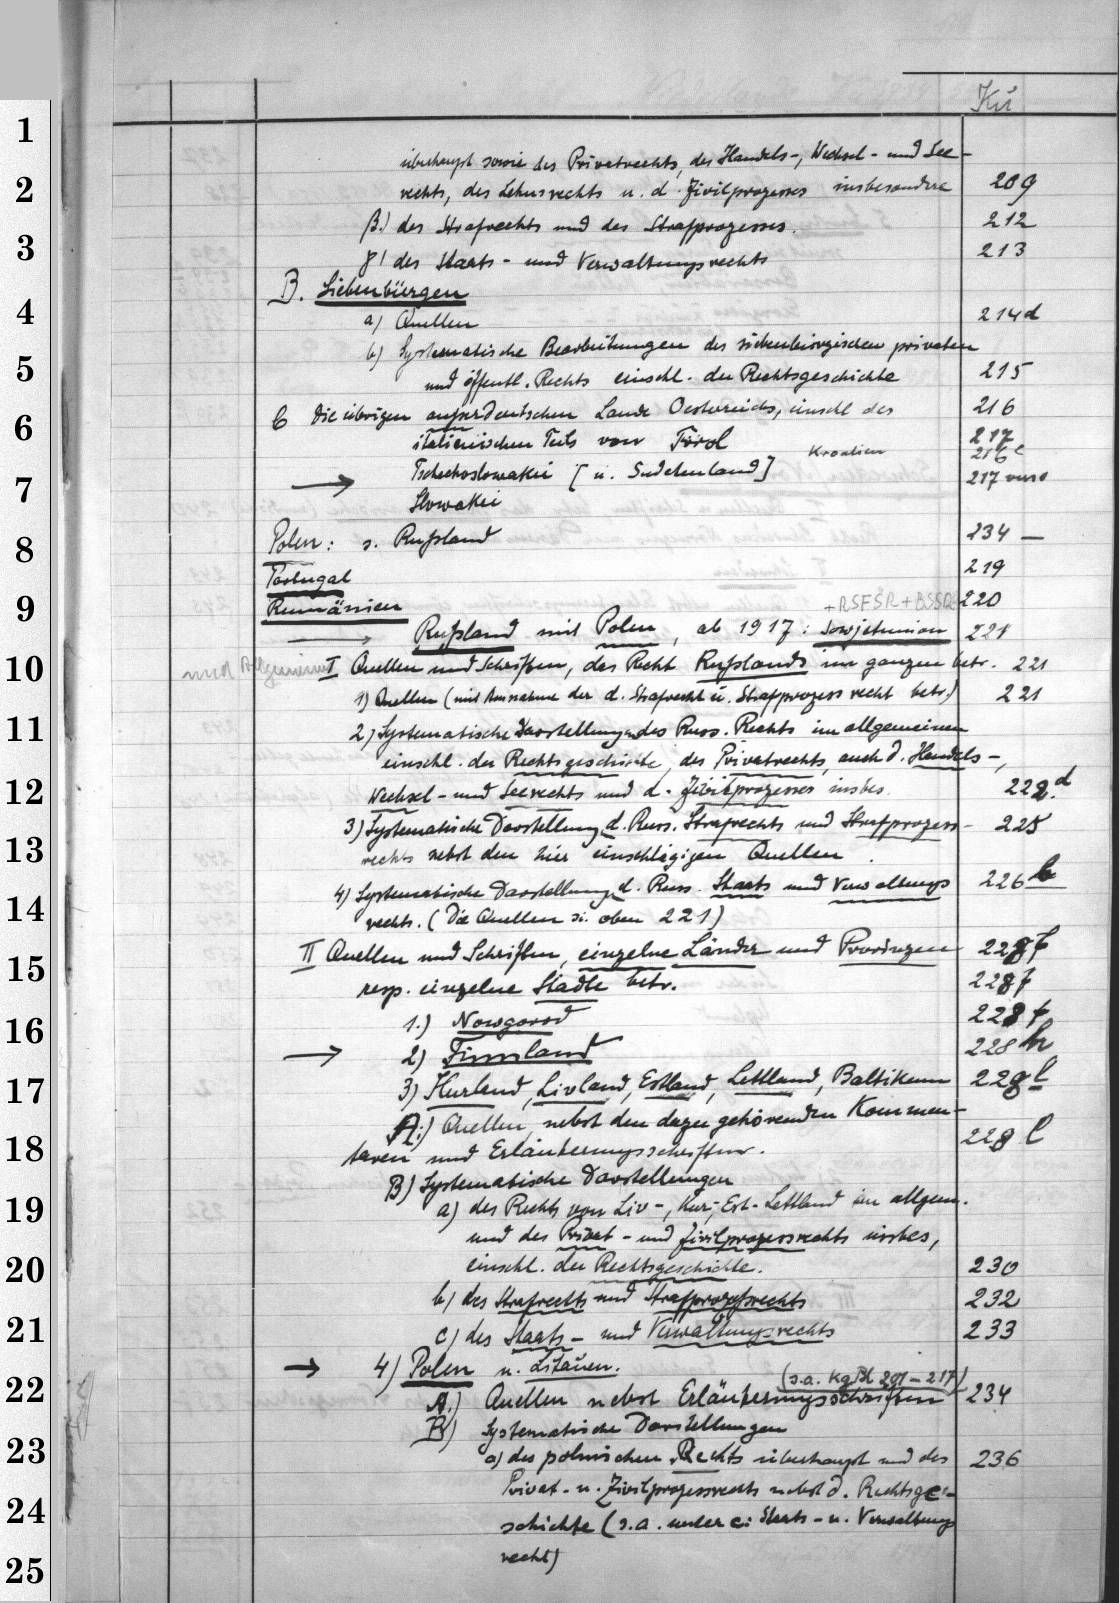 Kü
1
überhaupt sowie des Privatrechts, des Handels-, Wechsel- und See-
2
rechts, des Lehnsrechts u. d. Zivilprozesses insbesondere 209
β.) des Strafrechts und des Strafprozesses. 212
3
γ) des Staats- und Verwaltungsrechts 213
B. Siebenbürgen
4
a) Quellen 214d
b) Systematische Bearbeitungen des siebenbürgischen privaten
5
und öffentl. Rechts einschl. der Rechtsgeschichte 215
C Die übrigen außerdeutschen Lande Oesterreichs, einschl des 216
6
italienischen Teils von Tirol 217
Kroatien 216c
Tschechoslowakei [u. Sudetenland] 217 verso
7
→ Slowakei
Polen: s. Rußland 234 —
8
Portugal 219
Rumänien 220
9
+RSFSR+BSSR
Rußland mit Polen, ab 1917: Sowjetunion 221
10
und Allgemeines
I Quellen und Schriften, des Recht Rußlands im ganzen betr. 221
1) Quellen (mit Ausnahme der d. Strafrecht u. Strafprozess recht betr.) 221
11
2) Systematische Darstellungen des Russ. Rechts im allgemeinen
einschl. der Rechtsgeschichte, des Privatrechts, auch d. Handels-,
12
Wechsel- und Seerechts und d. Zivilprozesses insbes. 222.d
3) Systematische Darstellung d. Russ. Strafrechts und Strafprozess- 225
13
rechts nebst den hier einschlägigen Quellen.
4) Systematische Darstellung d. Russ. Staats und Verwaltungs 226 b
14
rechts. (Die Quellen si. oben 221)
II Quellen und Schriften, einzelne Länder und Provinzen 228f
15
resp. einzelne Städte betr. 228f
1.) Nowgorod 228f
16
→ 2) Finnland 228 h
17
3) Kurland, Livland, Estland, Lettland, Baltikum 228 l
A.) Quellen nebst den dazu gehörenden Kommen- 228 l
18
taren und Erläuterungsschriften.
B) Systematische Darstellungen
19
a) des Rechts von Liv-, Kur-, Est- Lettland im allgem.
und des Privat- und Zivilprozessrechts insbes,
20
einschl. der Rechtsgeschichte. 230
b) des Strafrechts und Strafprozeßrechts 232
21
c) des Staats- und Verwaltungsrechts 233
→ 4) Polen u. Litauen.
22
(s.a. Kg Bl 201-217)
A.) Quellen nebst Erläuterungsschriften 234
B) Systematische Darstellungen
23
a) des polnischen Rechts überhaupt und des 236
Privat- u. Zivilprozessrechts nebst d. Rechtsge-
24
schichte (s.a. unter c: Staats- u. Verwaltungs
25
recht)